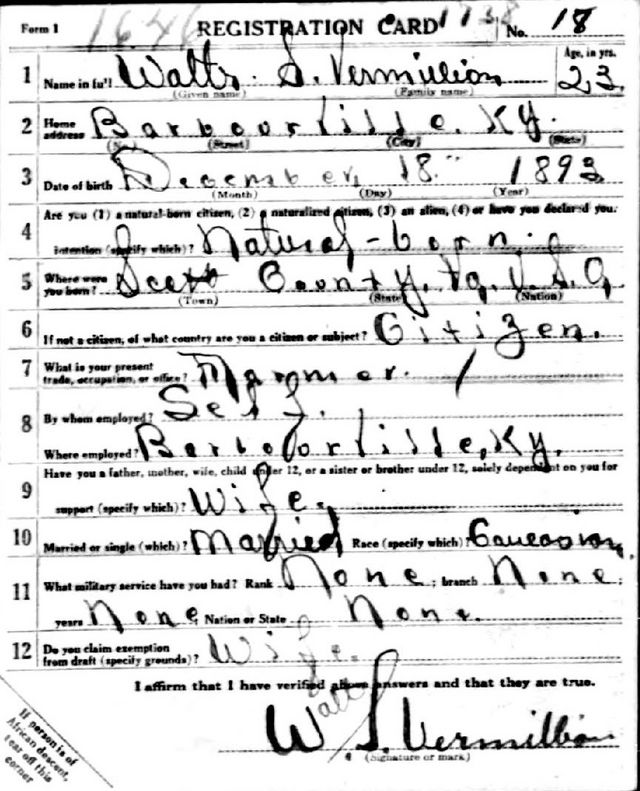 Form 1 1646 REGISTRATION CARD 1738 No. 18
1 Name in full Walter S. Vermillion Age, in yrs. 23
(Given name) (Family name)
2 Home address Barbourville, Ky.
(No.) (Street) (City) (State)
3 Date of birth December 18 1893
(Month) (Day) (Year)
4 Are you (1) a natural-born citizen, (2) a naturalized citizen, (3) an alien, (4) or have you declared your
intention (specify which)? Natural-born
5 Where were you born? Scott County, Va. U.S.A
(Town) (State) (Nation)
6 If not a citizen, of what country are you a citizen or subject? Citizen.
7 What is your present trade, occupation, or office? Farmer.
8 By whom employed? Self.
Where employed? Barbourville, Ky.
9 Have you a father, mother, wife, child under 12, or a sister or brother under 12, solely dependent on you for
support (specify which)? Wife.
10 Married or single (which)? Married Race (specify which)? Caucasian.
11 What military service have you had? Rank None; branch None;
years None Nation or State None.
12 Do you claim exemption from draft (specify grounds)? Wife.
I affirm that I have verified above answers and that they are true.
Walt
W S. Vermillion
(Signature or mark)
If person is of
African descent,
tear off this
corner